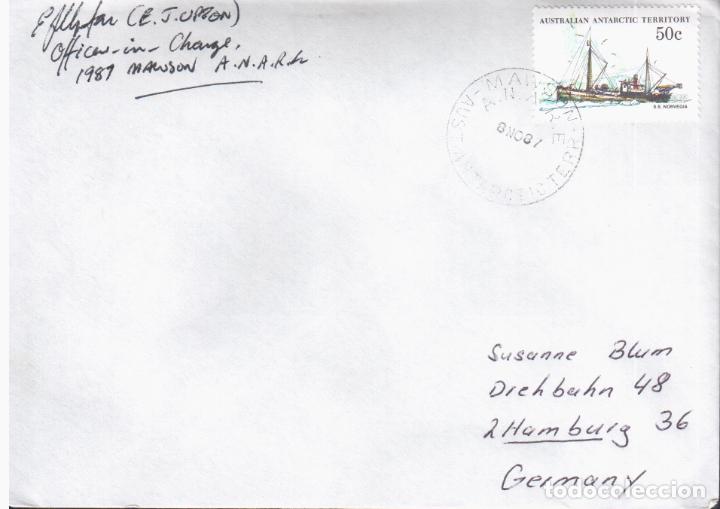 (E. J. UPTON)
Officer-in-Charge,
1987 MAWSON A.N.A.R.E.
AUSTRALIAN ANTARCTIC TERRITORY
50c
S.S. NORVEGIA
MAWSON
A.N.A.R.E
8NO87
AUST. ANTARCTIC TERR
Susanne Blum
Drehbahn 48
2 Hamburg 36
Germany
todocoleccion.net